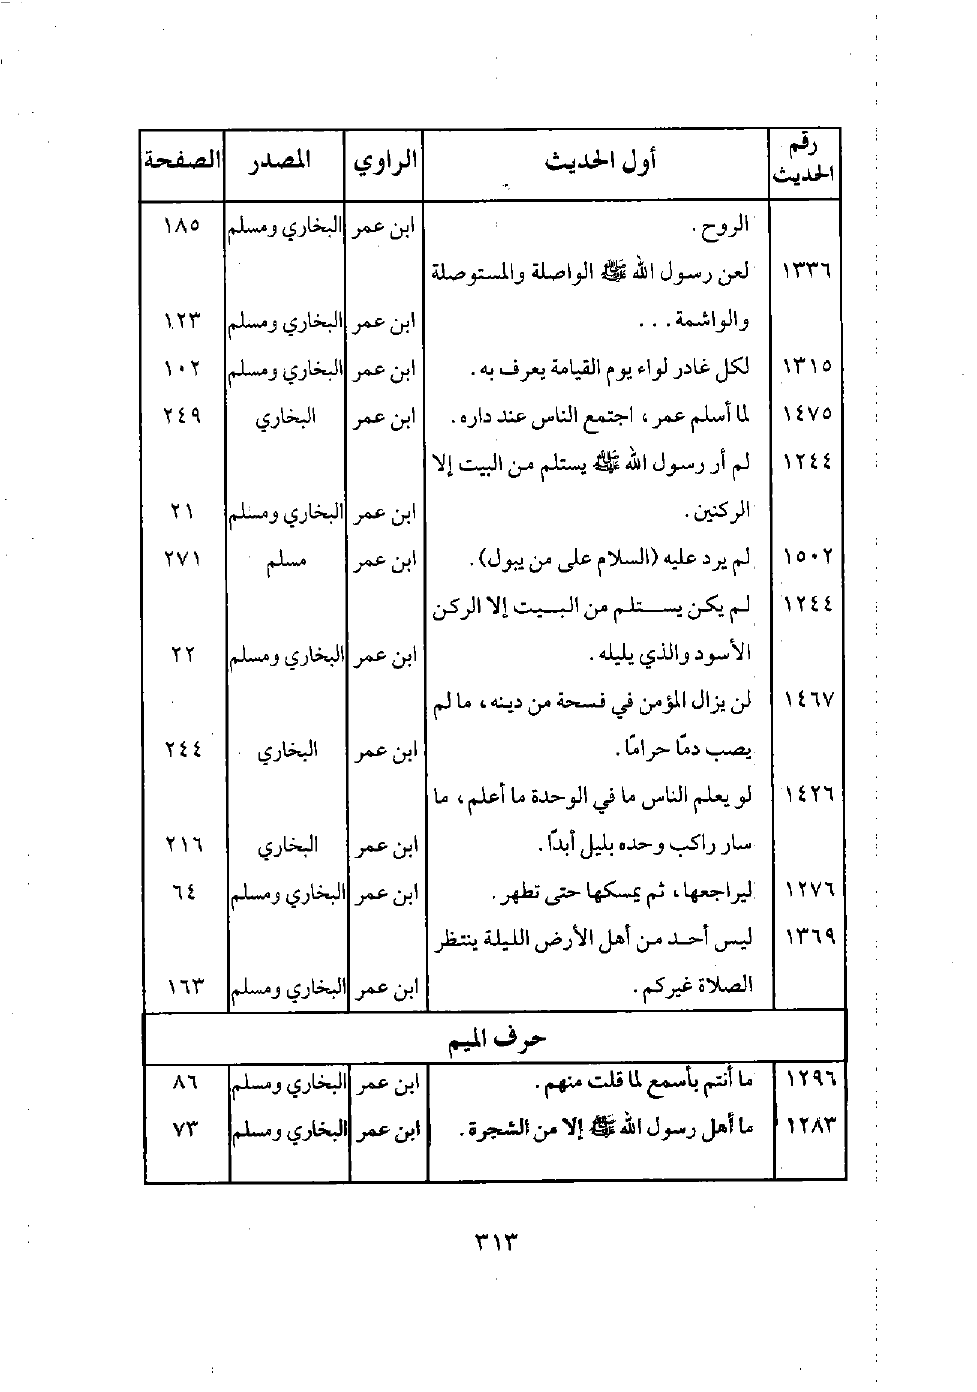 رقم الحديث أول الحديث الراوي المصدر الصفحة
الروح. ابن عمر البخاري ومسلم ١٨٥
١٣٣٦ لعن رسول الله ﷺ الواصلة والمستوصلة
والواشمة... ابن عمر البخاري ومسلم ١٢٣
١٣١٥ لكل غادر لواء يوم القيامة يعرف به. ابن عمر البخاري ومسلم ١٠٢
١٤٧٥ لما أسلم عمر، اجتمع الناس عند داره. ابن عمر البخاري ٢٤٩
١٢٤٤ لم أر رسول الله ﷺ يستلم من البيت إلا
الركنين. ابن عمر البخاري ومسلم ٢١
١٥٠٢ لم يرد عليه (السلام على من يبول). ابن عمر مسلم ٢٧١
١٢٤٤ لم يكن يستلم من البيت إلا الركن
الأسود والذي يليله. ابن عمر البخاري ومسلم ٢٢
١٤٦٧ لن يزال المؤمن في فسحة من دينه، ما لم
يصب دمًا حرامًا. ابن عمر البخاري ٢٤٤
١٤٢٦ لو يعلم الناس ما في الوحدة ما أعلم، ما
سار راكب وحده بليل أبدًا. ابن عمر البخاري ٢١٦
١٢٧٦ ليراجعها، ثم يمسكها حتى تطهر. ابن عمر البخاري ومسلم ٦٤
١٣٦٩ ليس أحد من أهل الأرض الليلة ينتظر
الصلاة غيركم. ابن عمر البخاري ومسلم ١٦٣
حرف الميم
١٢٩٦ ما أنتم بأسمع لما قلت منهم. ابن عمر البخاري ومسلم ٨٦
١٢٨٣ ما أهل رسول الله ﷺ إلا من الشجرة. ابن عمر البخاري ومسلم ٧٣
٣١٣